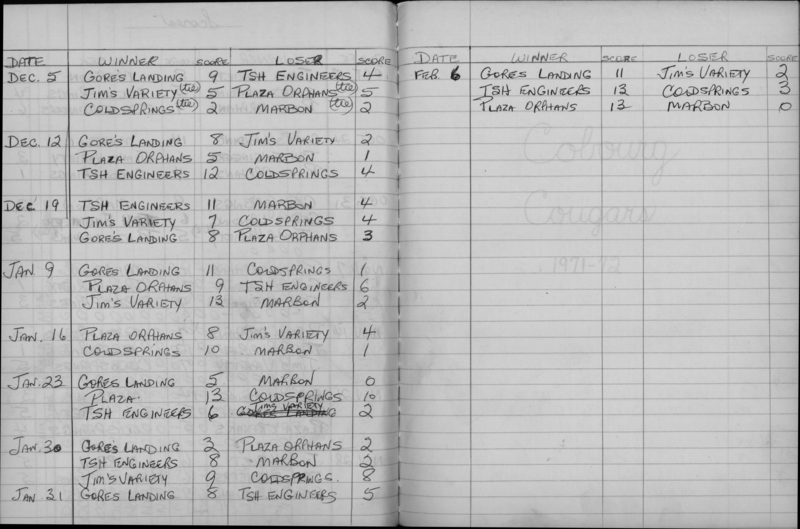 DATE WINNER SCORE LOSER SCORE
DEC. 5 GORE'S LANDING 9 TSH ENGINEERS 4
JIM'S VARIETY (tie) 5 PLAZA ORPHANS (tie) 5
COLDSPRINGS (tie) 2 MARBON (tie) 2
DEC. 12 GORE'S LANDING 8 JIM'S VARIETY 2
PLAZA ORPHANS 5 MARBON 1
TSH ENGINEERS 12 COLDSPRINGS 4
DEC 19 TSH ENGINEERS 11 MARBON 4
JIM'S VARIETY 7 COLDSPRINGS 4
GORE'S LANDING 8 PLAZA ORPHANS 3
JAN 9 GORES LANDING 11 COLDSPRINGS 1
PLAZA ORPHANS 9 TSH ENGINEERS 6
JIM'S VARIETY 13 MARBON 2
JAN. 16 PLAZA ORPHANS 8 JIM'S VARIETY 4
COLDSPRINGS 10 MARBON 1
JAN. 23 GORES LANDING 5 MARBON 0
PLAZA 13 COLDSPRINGS 10
TSH ENGINEERS 6 JIMS VARIETY GORES LANDING 2
JAN. 30 GORE'S LANDING 3 PLAZA ORPHANS 2
TSH ENGINEERS 8 MARBON 2
JIM'S VARIETY 9 COLDSPRINGS. 8
JAN 31 GORES LANDING 8 TSH ENGINEERS 5
DATE WINNER SCORE LOSER SCORE
FEB 6 GORES LANDING 11 JIM'S VARIETY 2
TSH ENGINEERS 13 COLDSPRINGS 3
PLAZA ORPHANS 13 MARBON 0
Cobourg
Cougars
1971-72